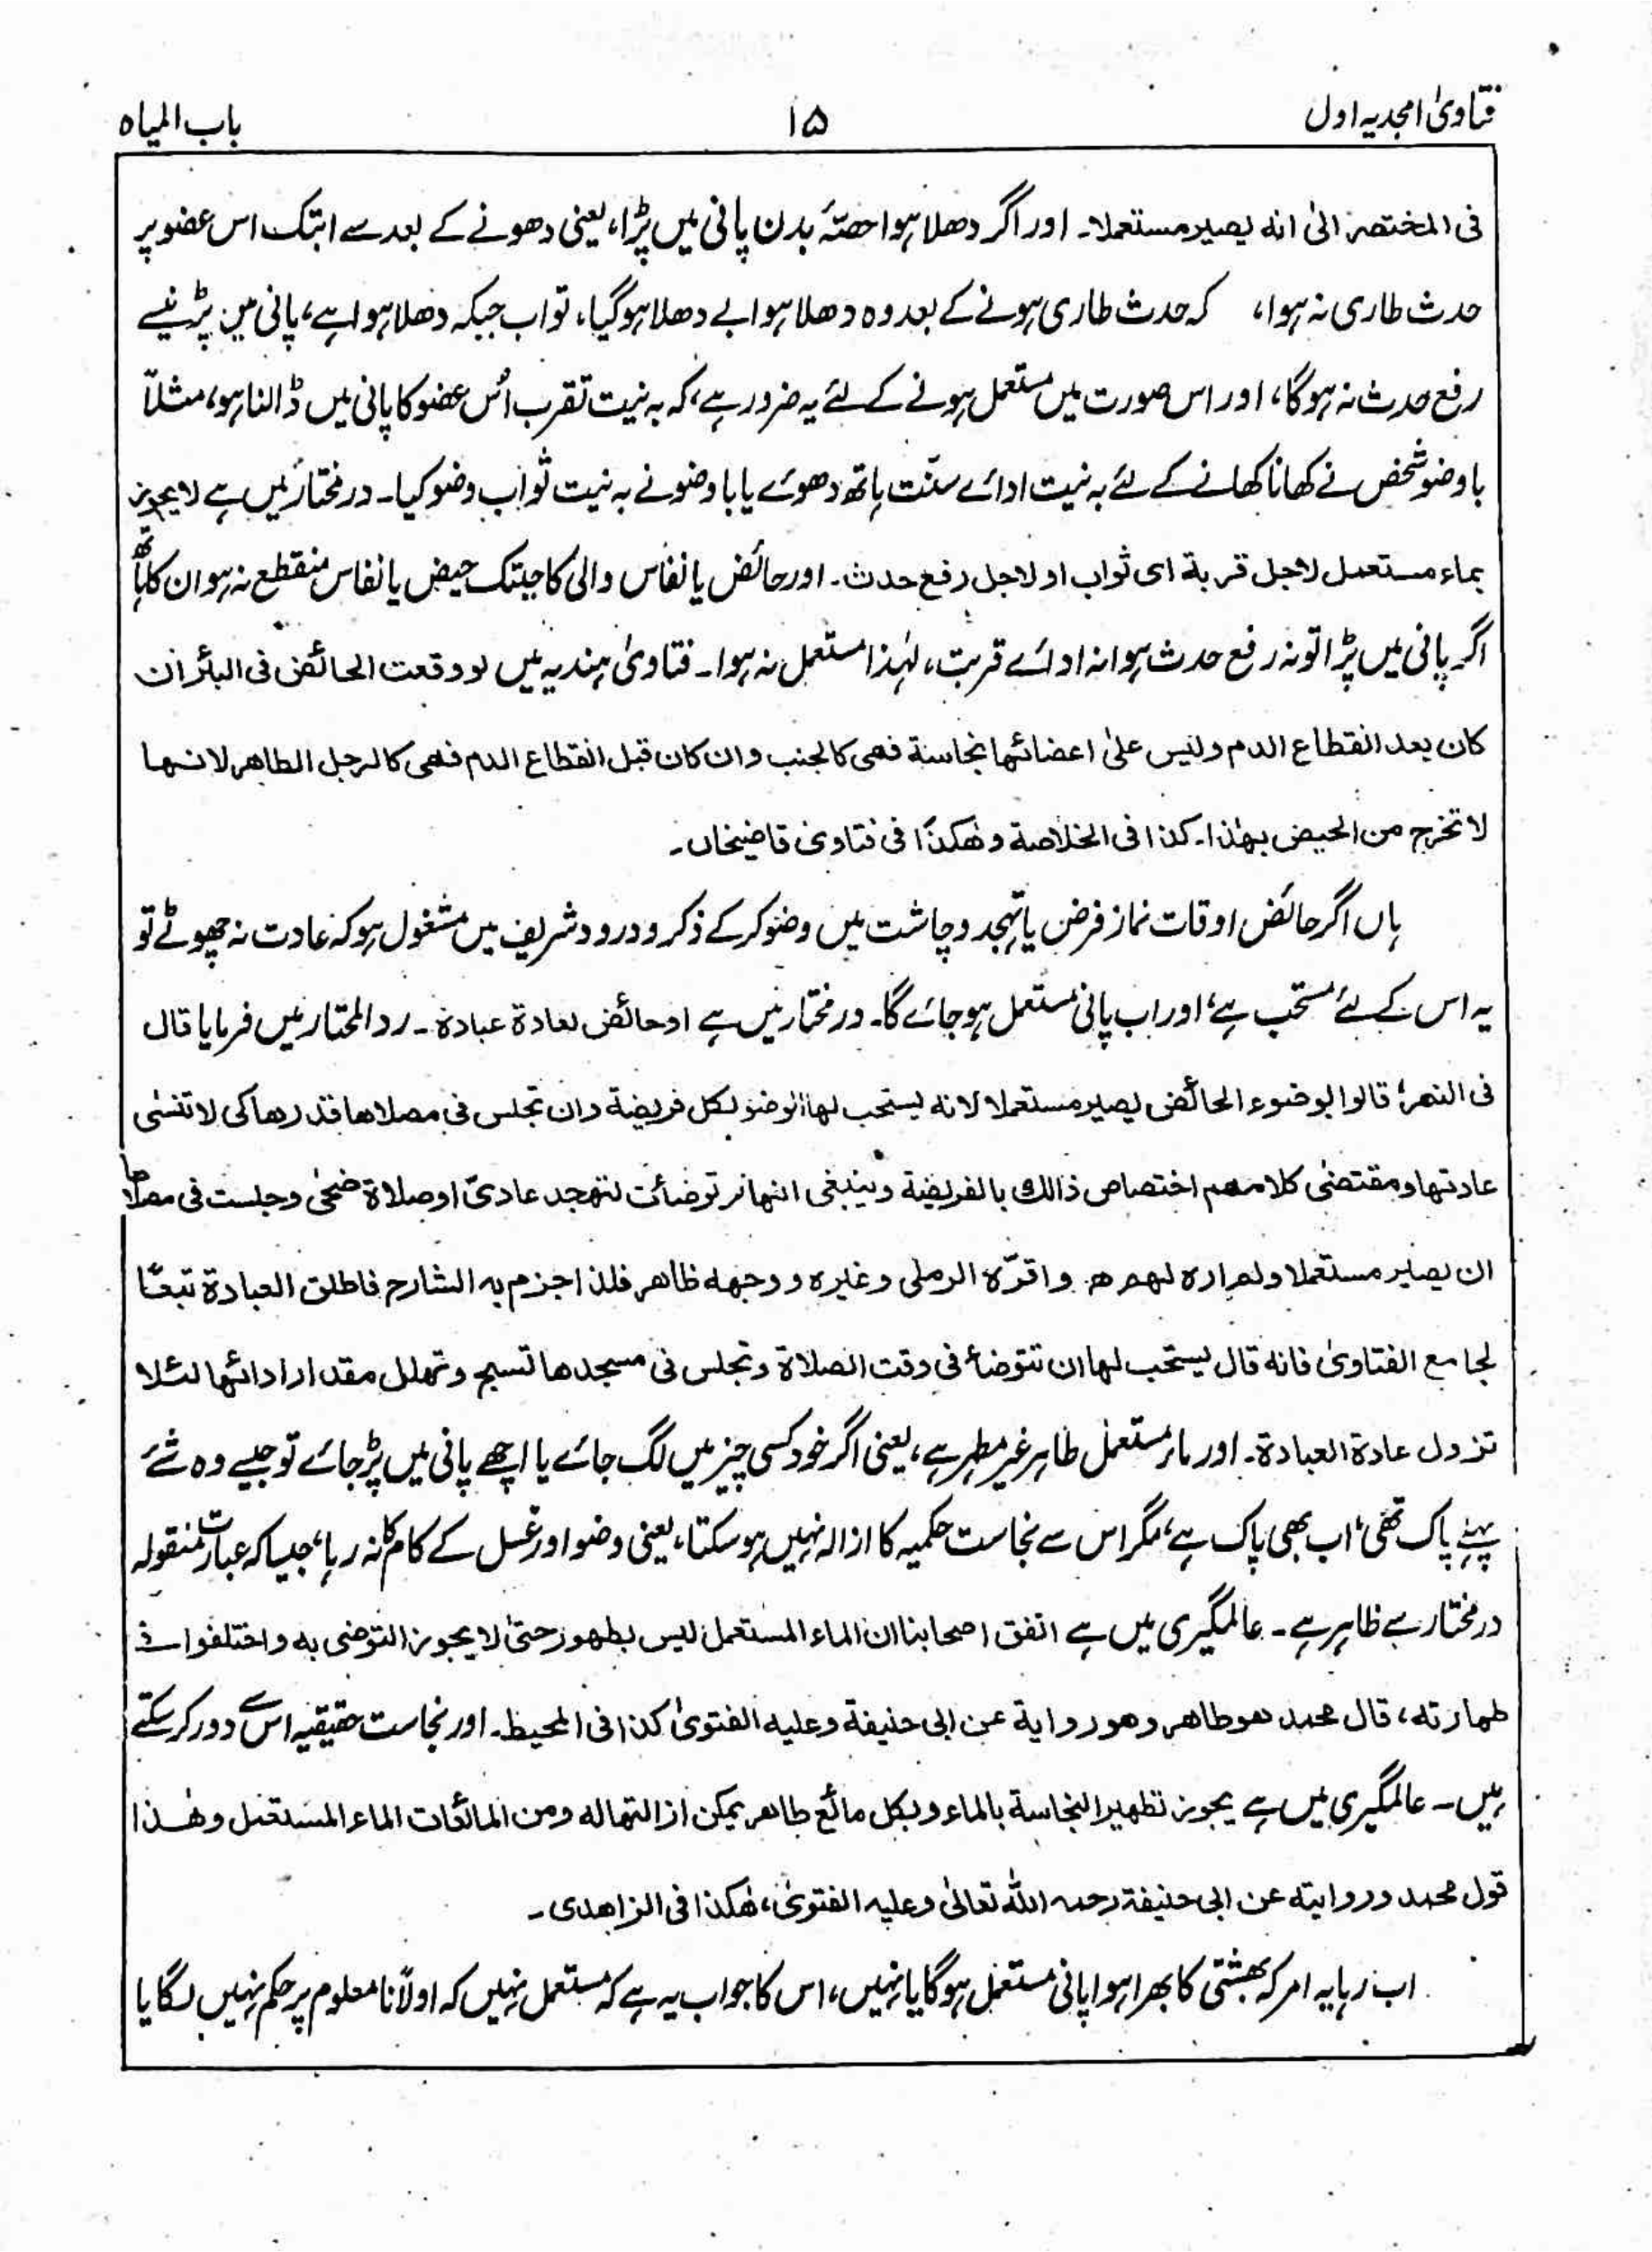 فتاویٰ امجدیہ اول ۱۵ باب المیاہ
فی المختصر الیٰ انہ یصیر مستعملا۔ اور اگر دھلا ہوا حصۂ بدن پانی میں پڑا، یعنی دھونے کے بعد سے ابتک اس عضو پر
حدث طاری نہ ہوا، کہ حدث طاری ہونے کے بعد وہ دھلا ہوا بے دھلا ہوگیا، تو اب جبکہ دھلا ہوا ہے، پانی میں پڑنیسے
رفع حدث نہ ہوگا، اور اس صورت میں مستعمل ہونے کے لئے یہ ضرور ہے، کہ بہ نیت تقرب اُس عضو کا پانی میں ڈالنا ہو، مثلاً
باوضو شخص نے کھانا کھانے کے لئے بہ نیت ادائے سنّت ہاتھ دھوئے یا باوضو نے بہ نیت ثواب وضو کیا۔ درمختار میں ہے لا یجوز
بماء مستعمل لاجل قربۃ ای ثواب او لاجل رفع حدث۔ اور حائض یا نفاس والی کا جبتک حیض یا نفاس منقطع نہ ہو ان کا ہاتھ
اگر پانی میں پڑا تو نہ رفع حدث ہوا نہ ادائے قربت، لہٰذا مستعمل نہ ہوا۔ فتاویٰ ہندیہ میں لو وقعت الحائض فی البئر ان
کان بعد انقطاع الدم ولیس علیٰ اعضائھا نجاسۃ فھی کالجنب وان کان قبل انقطاع الدم فھی کالرجل الطاھر لانھا
لا تخرج من الحیض بھٰذا۔ کذا فی الخلاصۃ وھٰکذا فی فتاویٰ قاضیخاں۔
ہاں اگر حائض اوقات نماز فرض یا تہجد و چاشت میں وضو کرکے ذکر و درود شریف میں مشغول ہو کہ عادت نہ چھوٹے تو
یہ اس کے لئے مستحب ہے، اور اب پانی مستعمل ہو جائے گا۔ درمختار میں ہے او حائض لعادۃ عبادۃ۔ ردالمحتار میں فرمایا قال
فی النھر؛ قالوا بوضوء الحائض یصیر مستعملا لانہ یستحب لھا الوضو لکل فریضۃ وان تجلس فی مصلاھا قدرھا کی لا تنسٰی
عادتھا ومقتضیٰ کلامھم اختصاص ذالک بالفریضۃ وینبغی انھا لو توضأت لتھجد عادیّ او صلاۃ ضحیٰ وجلست فی مصلاھا
ان یصیر مستعملا ولم ارہ لھم ھ۔ واقرّہ الرملی وغیرہ ووجھہ ظاھر فلذا جزم بہ الشارح فاطلق العبادۃ تبعًا
لجامع الفتاویٰ فانہ قال یستحب لھا ان تتوضأ فی وقت الصلاۃ وتجلس فی مسجدھا تسبح وتھلل مقدار ادائھا لئلا
تزول عادۃ العبادۃ۔ اور ماءِ مستعمل طاہر غیر مطہر ہے، یعنی اگر خود کسی چیز میں لگ جائے یا اچھے پانی میں پڑ جائے تو جیسے وہ شئے
پہلے پاک تھی، اب بھی پاک ہے، مگر اس سے نجاست حکمیہ کا ازالہ نہیں ہو سکتا، یعنی وضو اور غسل کے کام کا نہ رہا، جیسا کہ عبارت منقولہ
درمختار سے ظاہر ہے۔ عالمگیری میں ہے اتفق اصحابنا ان الماء المستعمل لیس بطھور حتیٰ لا یجوز التوضی بہ واختلفوا فی
طھارتہ، قال محمد ھو طاھر وھو روایۃ عن ابی حنیفۃ وعلیہ الفتویٰ کذا فی المحیط۔ اور نجاست حقیقیہ اس سے دور کر سکتے
ہیں۔ عالمگیری میں ہے یجوز تطھیر النجاسۃ بالماء وبکل مائع طاھر یمکن ازالتھا لہ ومن المائعات الماء المستعمل وھٰذا
قول محمد و روایتہ عن ابی حنیفۃ رحمہ اللہ تعالیٰ وعلیہ الفتویٰ، ھٰکذا فی الزاھدی۔
اب رہا یہ امر کہ بھشتی کا بھرا ہوا پانی مستعمل ہوگا یا نہیں، اس کا جواب یہ ہے کہ مستعمل نہیں کہ اولاً نامعلوم پر حکم نہیں لگایا